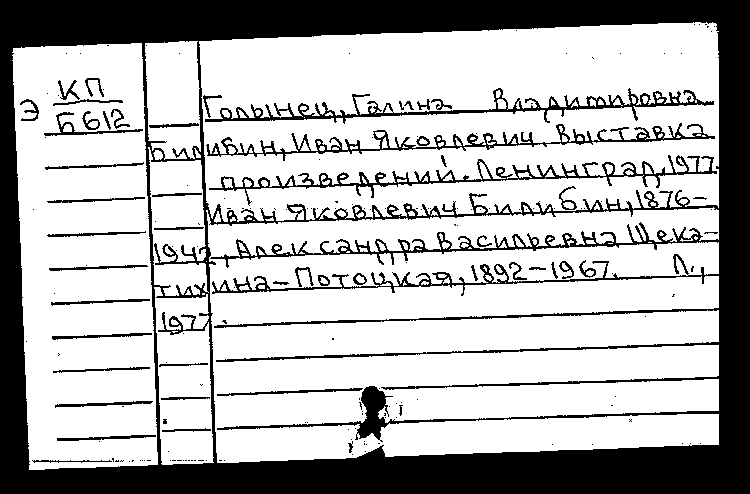 Э КП
Б612
Голынец, Галина Владимировна
Билибин, Иван Яковлевич. Выставка
произведений. Ленинград, 1977.
Иван Яковлевич Билибин, 1876-
1942, Александра Васильевна Щека-
тихина-Потоцкая, 1892-1967. Л.,
1977.